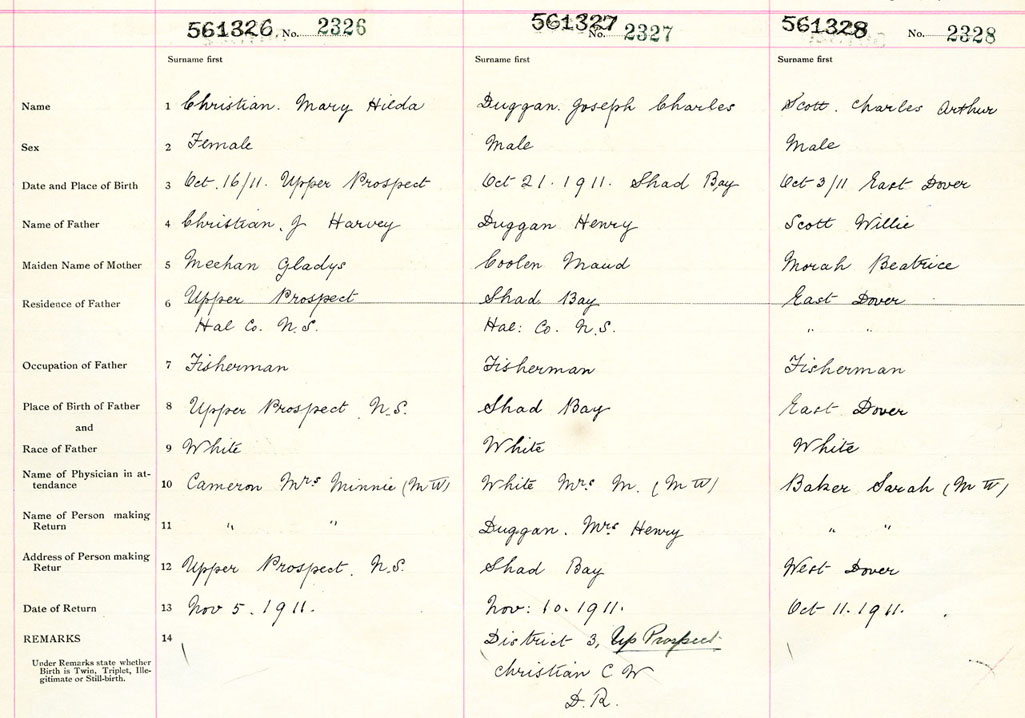 561326. No. 2326 561327 No. 2327 561328 No. 2328
Surname first Surname first Surname first
Name 1 Christian. Mary Hilda Duggan. Joseph Charles Scott. Charles Arthur
Sex 2 Female Male Male
Date and Place of Birth 3 Oct. 16/11. Upper Prospect Oct 21. 1911. Shad Bay Oct 3/11 East Dover
Name of Father 4 Christian. J Harvey Duggan Henry Scott Willie
Maiden Name of Mother 5 Meehan Gladys Coolen Maud Morah Beatrice
Residence of Father 6 Upper Prospect Shad Bay East Dover
Hal Co. N.S. Hal: Co. N.S. " "
Occupation of Father 7 Fisherman Fisherman Fisherman
Place of Birth of Father 8 Upper Prospect N.S. Shad Bay East Dover
and
Race of Father 9 White White White
Name of Physician in at-
tendance 10 Cameron Mrs Minnie (M W) White Mrs M. (M W) Baker Sarah (M W)
Name of Person making
Return 11 " " Duggan. Mrs Henry " "
Address of Person making
Retur 12 Upper Prospect. N.S. Shad Bay West Dover
Date of Return 13 Nov 5. 1911. Nov: 10. 1911. Oct 11. 1911.
REMARKS 14 District 3, Up Prospect
Under Remarks state whether
Birth is Twin, Triplet, Ille-
gitimate or Still-birth.
Christian C W
D.R.